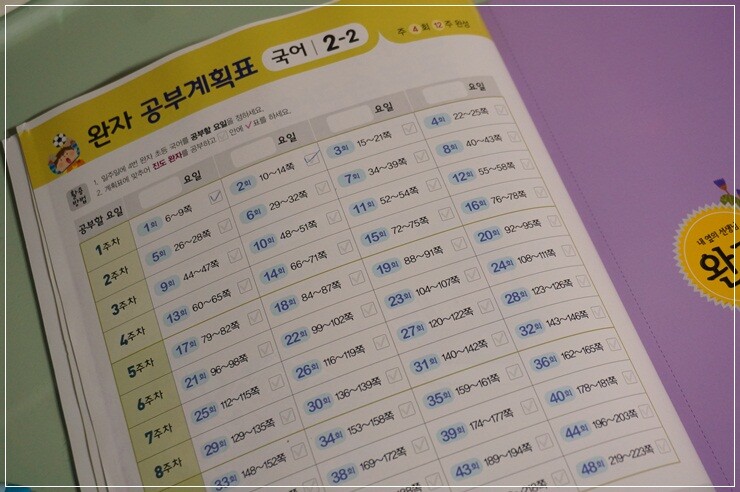 완자 공부계획표 국어 2-2
주 4 회 12 주 완성
활용 방법
1. 일주일에 4번 완자 초등 국어를 공부할 요일을 정하세요.
2. 계획표에 맞추어 진도 완자를 공부하고 안에 ✓표를 하세요.
공부할 요일 요일 요일 요일 요일
1주차 1회 6~9쪽 2회 10~14쪽 3회 15~21쪽 4회 22~25쪽
2주차 5회 26~28쪽 6회 29~32쪽 7회 34~39쪽 8회 40~43쪽
3주차 9회 44~47쪽 10회 48~51쪽 11회 52~54쪽 12회 55~58쪽
4주차 13회 60~65쪽 14회 66~71쪽 15회 72~75쪽 16회 76~78쪽
5주차 17회 79~82쪽 18회 84~87쪽 19회 88~91쪽 20회 92~95쪽
6주차 21회 96~98쪽 22회 99~102쪽 23회 104~107쪽 24회 108~111쪽
7주차 25회 112~115쪽 26회 116~119쪽 27회 120~122쪽 28회 123~126쪽
8주차 29회 129~135쪽 30회 136~139쪽 31회 140~142쪽 32회 143~146쪽
33회 148~152쪽 34회 153~158쪽 35회 159~161쪽 36회 162~165쪽
38회 169~172쪽 39회 174~177쪽 40회 178~181쪽
43회 189~194쪽 44회 196~203쪽
48회 219~223쪽
내 옆의 선생님
완